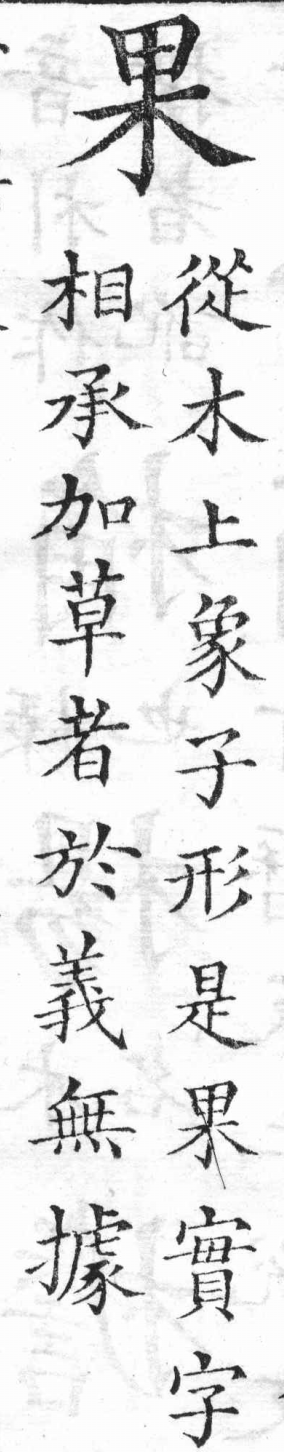 果
從木上象子形是果實字
相承加草者於義無據